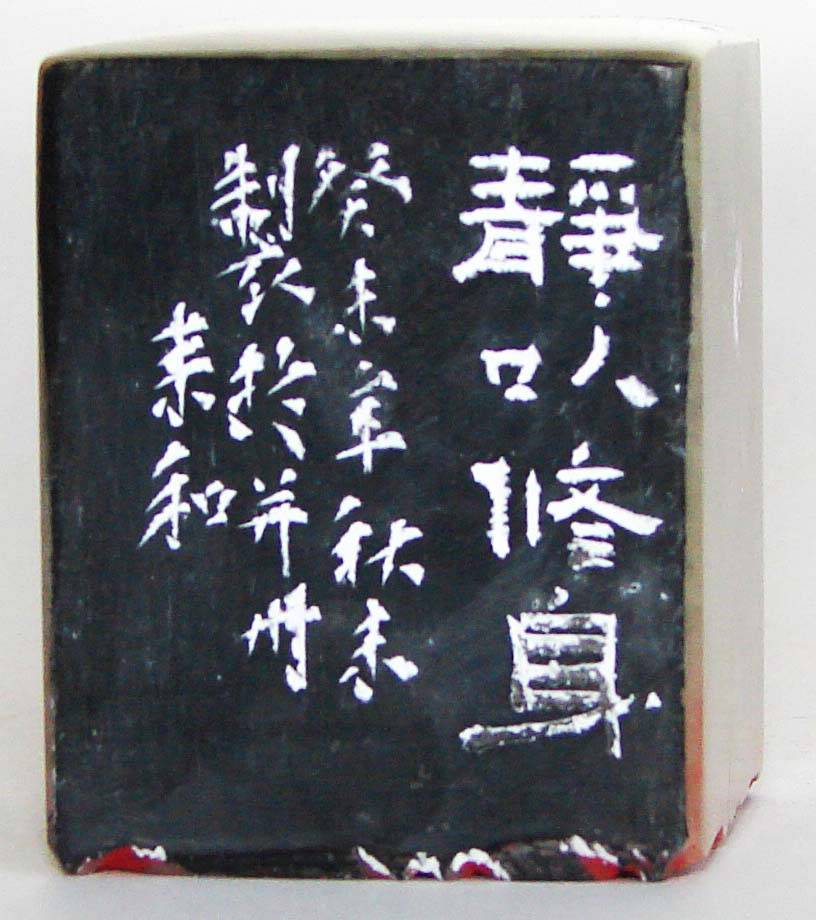 靜以修身
癸未年秋末
製於并州
和